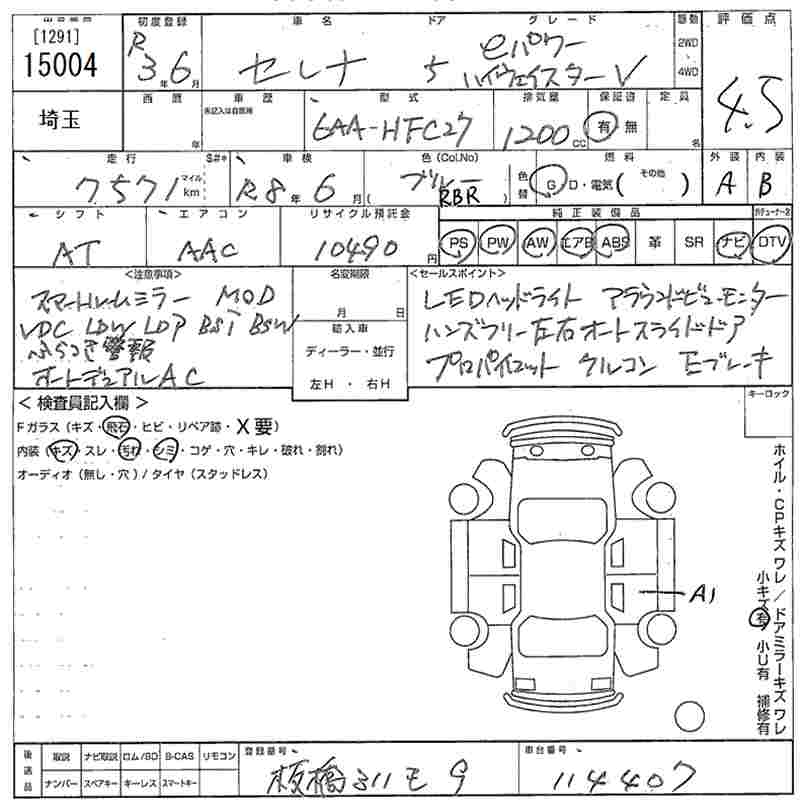 [1291]
15004
埼玉
初度登録
R 3年 6月
車名
セレナ
ドア
5
グレード
eパワー
ハイウェイスターV
駆動
2WD
・
4WD
評価点
4.5
西暦
年
車歴
未記入は自家用
型式
6AA-HFC27
排気量
1200 CC
保証書
有 無
定員
名
走行
7571 マイル km
S#*
車検
R8年 6月
色 (Col.No)
ブルー
( RBR )
色替
燃料
G D・電気 ( その他 )
外装
A
内装
B
シフト
AT
エアコン
AAC
リサイクル預託金
10490 円
純正装備品
PS PW AW エアB ABS 革 SR ナビ DTV
<注意事項>
スマートルームミラー MOD
VDC LDW LDP BSI BSW
ふらつき警報
オートデュアルAC
名変期限
月 日
輸入車
ディーラー・並行
左H ・ 右H
<セールスポイント>
LEDヘッドライト アラウンドビューモニター
ハンズフリー左右オートスライドドア
プロパイロット クルコン Eブレーキ
< 検査員記入欄 >
Fガラス (キズ・飛石・ヒビ・リペア跡・X要)
内装 (キズ・スレ・汚れ・シミ・コゲ・穴・キレ・破れ・割れ)
オーディオ (無し・穴) / タイヤ (スタッドレス)
キーロック
A1
ホイル・CPキズ ワレ / ドアミラーキズ ワレ
小キズ有 小U有 補修有
後送品
取説 ナビ取説 ロム/BD B-CAS リモコン
ナンバー スペアキー キーレス スマートキー
登録番号
板橋 311 モ 9
車台番号
114407